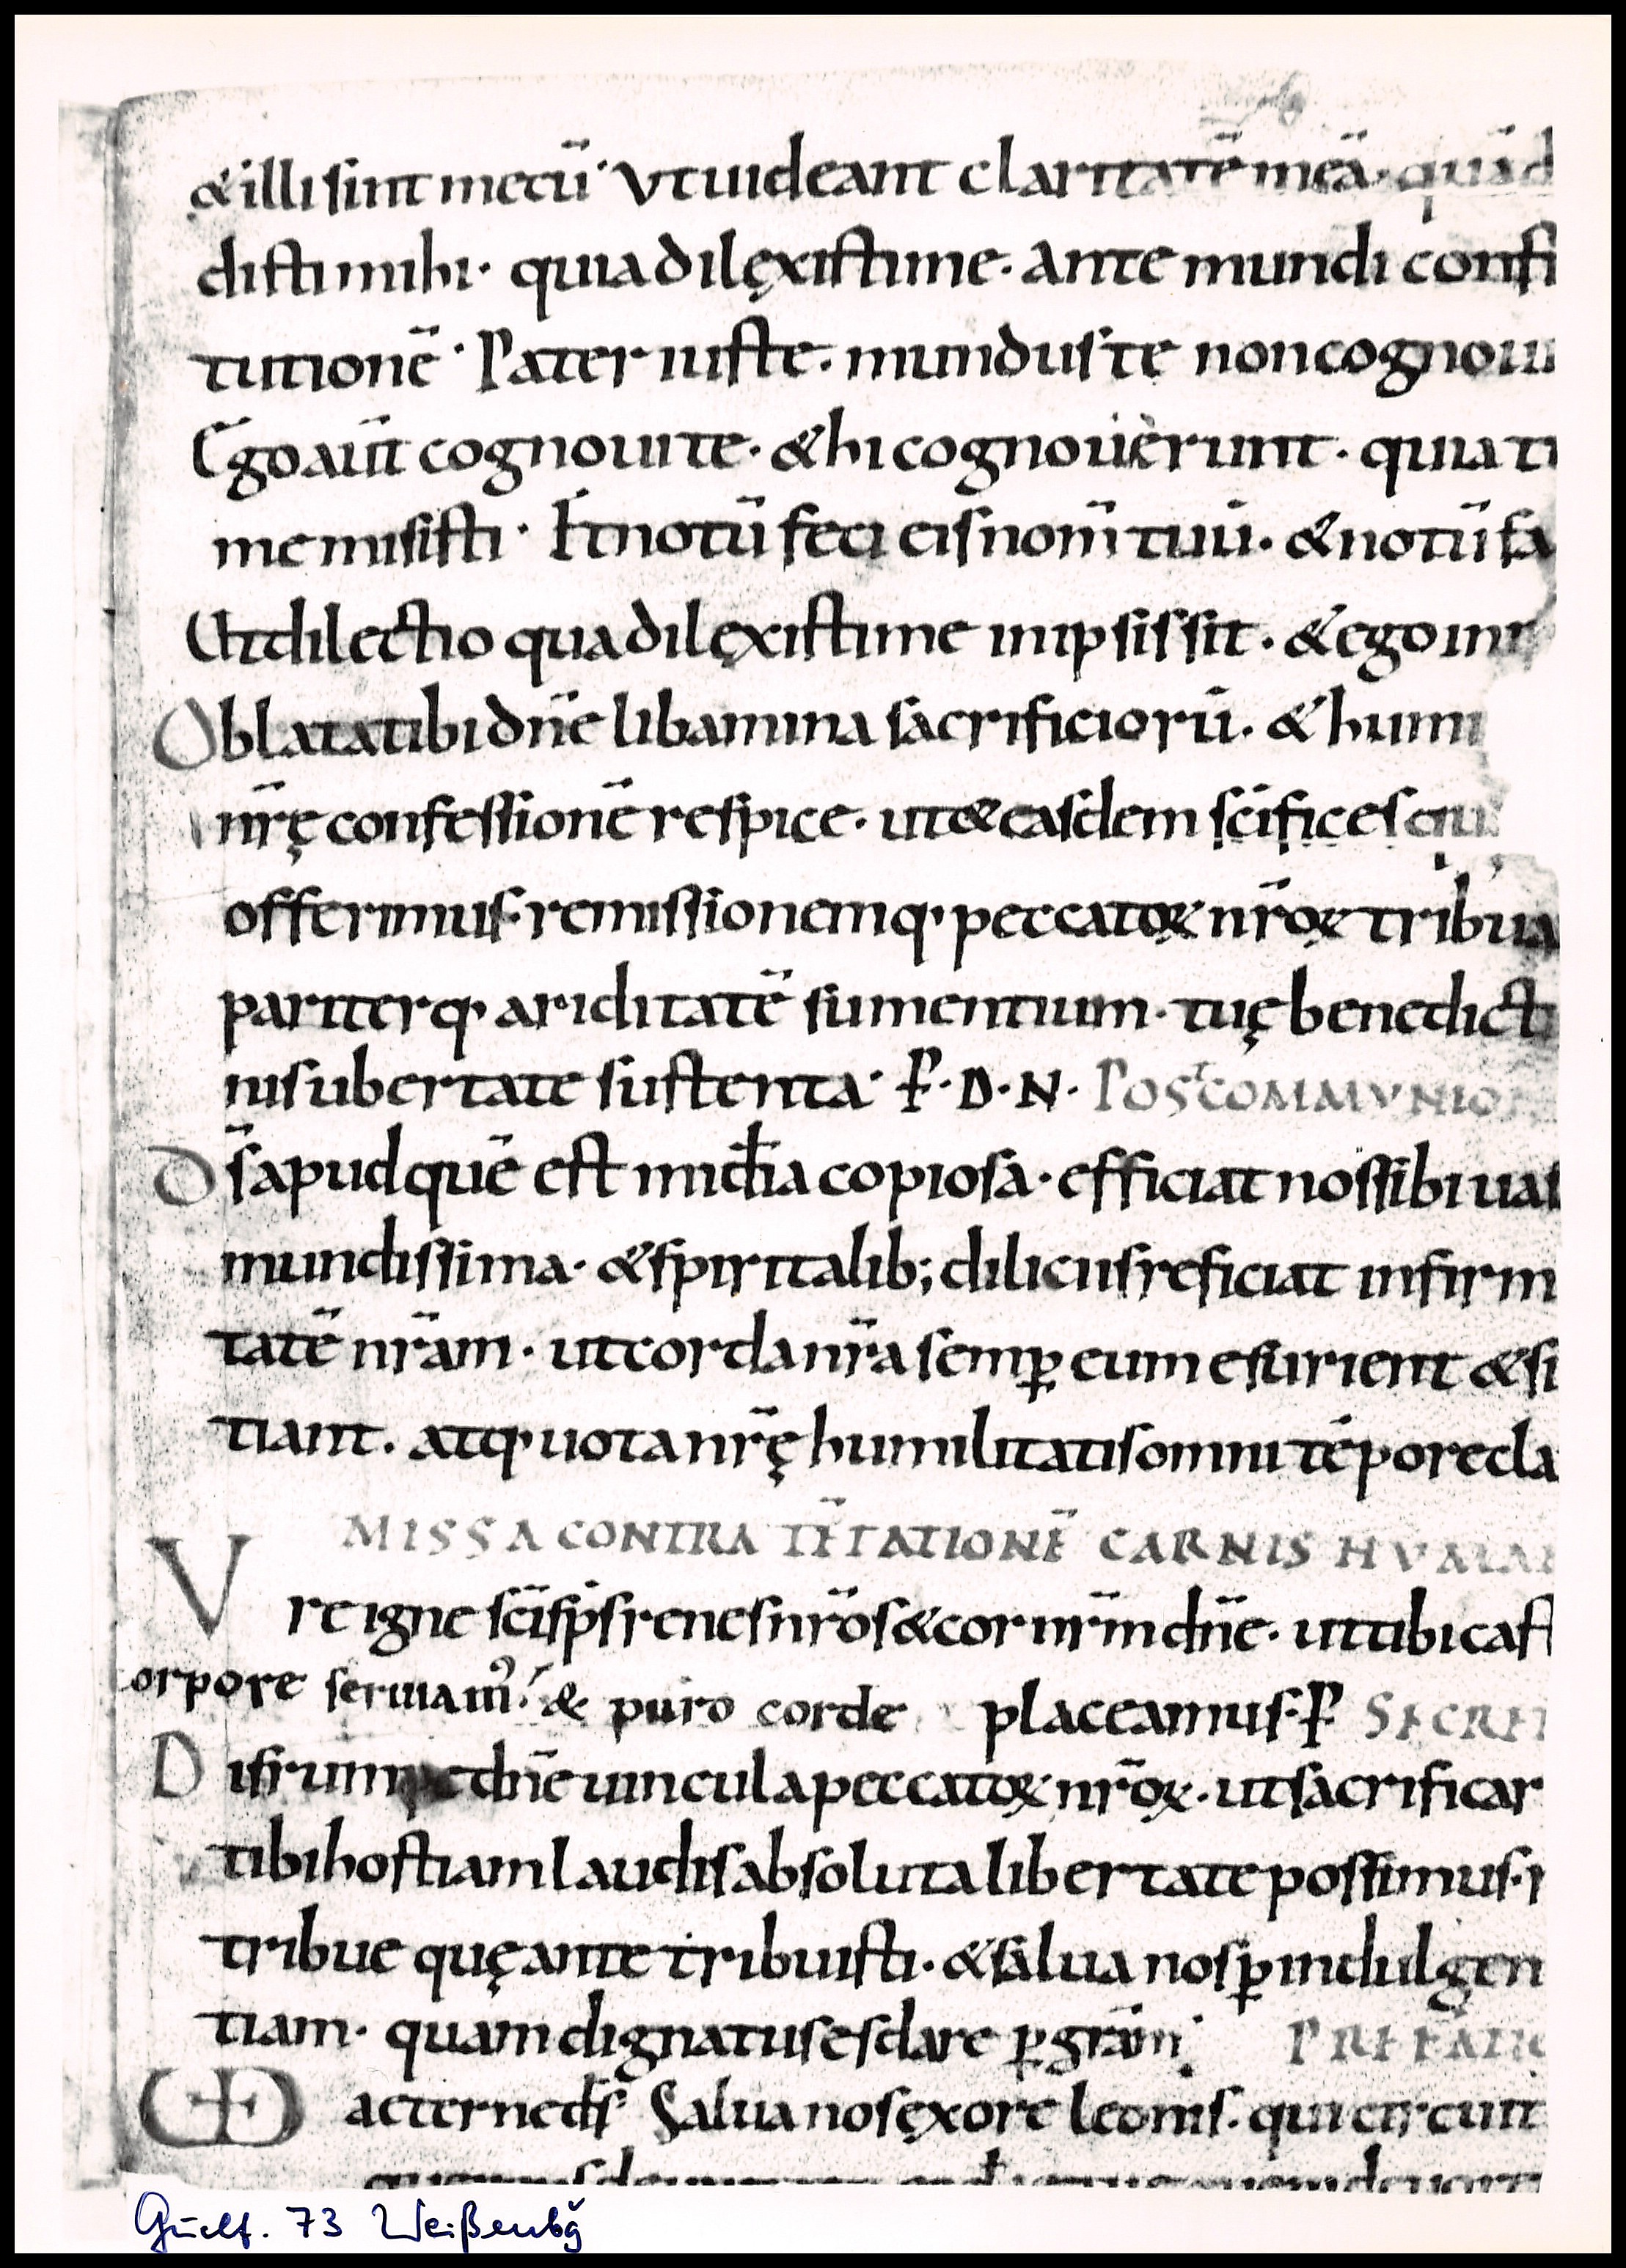 & illi sint mecū· Vt uideant claritatē meā· quā d
disti mihi· quia dilęxisti me· ante mundi consti
tutionē· Pater iuste· mundus te non cognoui
Ego aūt cognoui te· & hi cognouerunt· quia t
me misisti· Et notū feci eis nom̄ tuū· & notū fa
Vt dilectio qua dilęxisti me in ipsis sit· & ego in
Oblata tibi dn̄e libamina sacrificiorū· & humi
nr̄ę confessionē respice· ut & easdem sc̄ifices qu
offerimus· remissionemq· peccatoꝝ nr̄oꝝ tribua
pariterq· ariditatē sumentium· tuę benedict
nis ubertate sustenta· P· D· N· POST COMMVNIO
D s̄ apud quē est mīcđia copiosa· efficiat nos sibi uas
mundissima· & spiritalib; diliciis reficiat infirm
tatē nr̄am· ut corda nr̄a semꝑ eum esurient & si
tiant· atq· uota nr̄ę humilitatis omni tēpore cla
MISSA CONTRA TĒTATIONĒ CARNIS
Vre igne sc̄i sp̄s renes nr̄os & cor nr̄m dn̄e· ut tibi cast
orpore seruiam᾽ & puro corde placeamus· P SACRE
Disrumpe dn̄e uincula peccatoꝝ nr̄oꝝ· ut sacrificar
tibi hostiam laudis absoluta libertate possimus·
tribue quę ante tribuisti· & salua nos ꝑ indulgen
tiam· quam dignatus es dare ꝑ gr̄am· PREFATIO
VD aeterne ds̄ Salua nos ęx ore leonis· qui circuit
Guelf. 73 Weißenbg